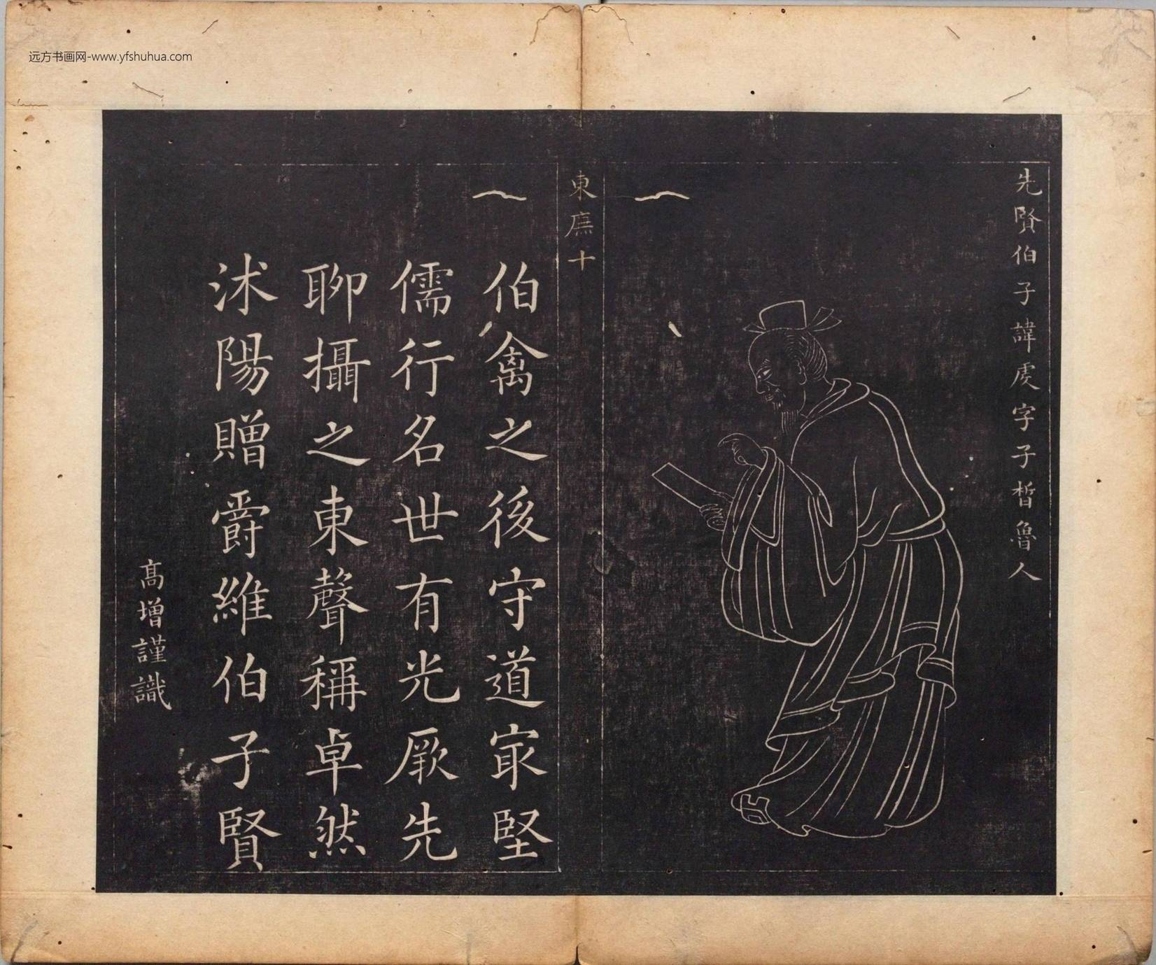 远方书画网-www.yfshuhua.com
先賢伯子諱虔字子晳魯人
東廡十
伯禽之後守道冣堅
儒行名世有光厥先
聊攝之東聲稱卓然
沭陽贈爵維伯子賢
高增謹識